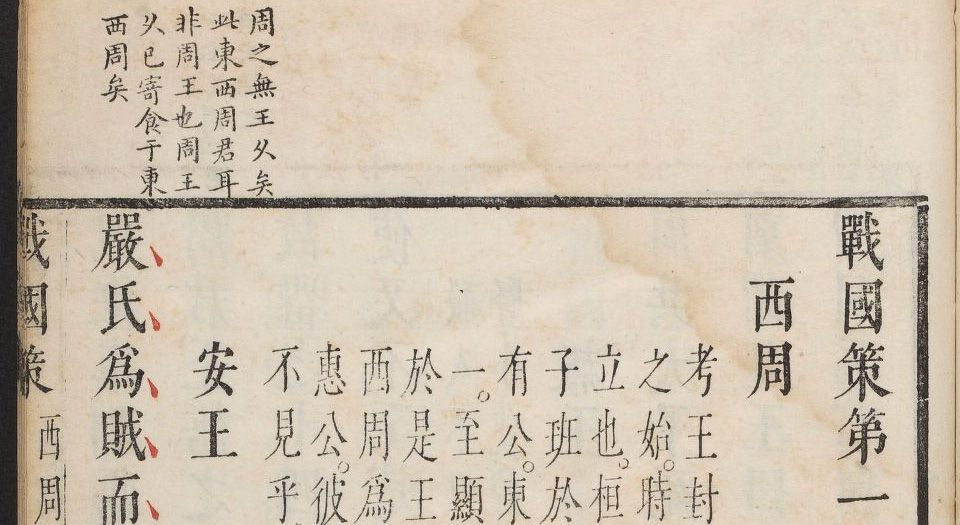 周之無王乆矣
此東西周君耳
非周王也周王
乆已寄食于東
西周矣
戰國策第一
西周
考王封
之始。時
立也。桓
子班於
有公。東
一。至顯
於是王
西周為
惠公。彼
不見乎
安王
嚴氏爲賊而
戰國策
西周